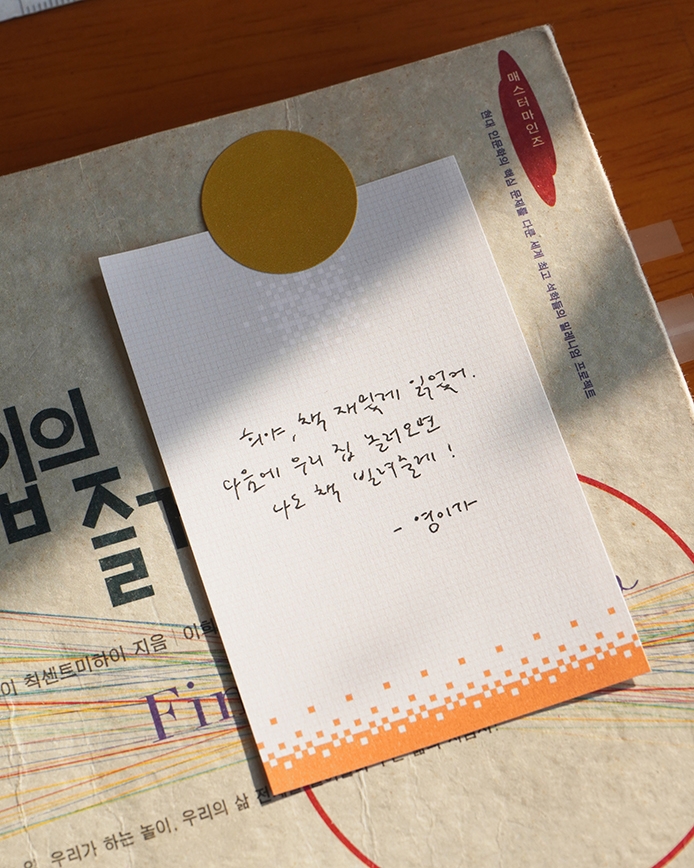 매스터마인즈
현대 인문학의 핵심 문제를 다룬 세계 최고 석학들의 밀레니엄 프로젝트
희야, 책 재밌게 읽었어.
다음에 우리 집 놀러오면
나도 책 빌려줄게!
- 영이가
의
즐
이 칙센트미하이 지음 | 이희
Fin
의, 우리가 하는 놀이. 우리의 삶 전